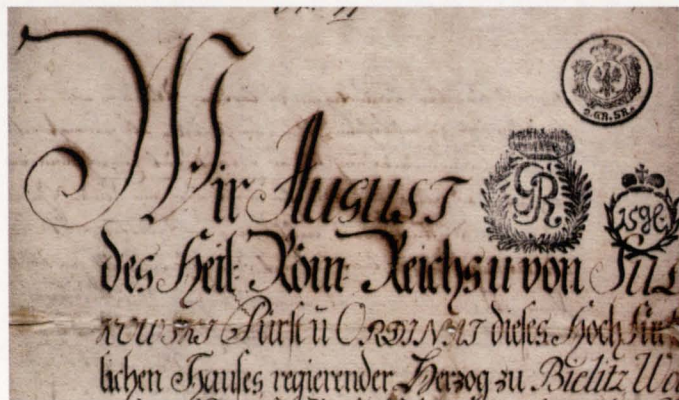 Wir August
des Heil: Röm: Reichs u von Sul
KOWSKI Fürst u ORDINAT dieses Hoch Fürst
lichen Hauses regierender Herzog zu Bielitz
GR
2.GR.SR.